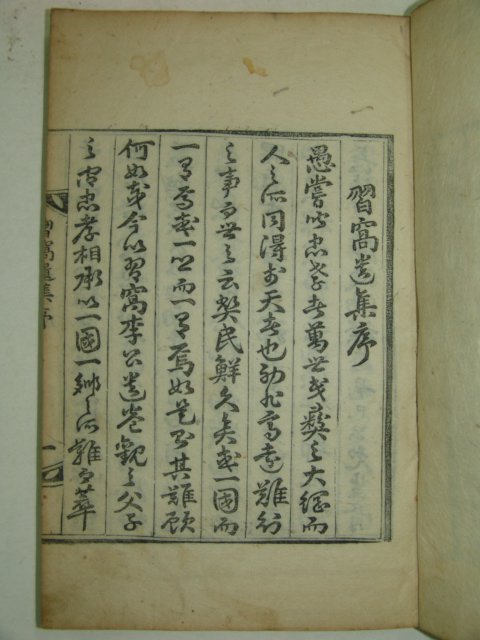 習窩遺集序
愚嘗以忠孝者萬世民彝之大綱而
人之所同得於天者也初非高遠難行
之事而世之云民鮮久矣或一國而
一有焉或一而一有焉如是其難顧
何如哉今以習窩李公遺卷觀之父子
之間忠孝相承以一國一鄉之所難而萃
習窩遺集序
一